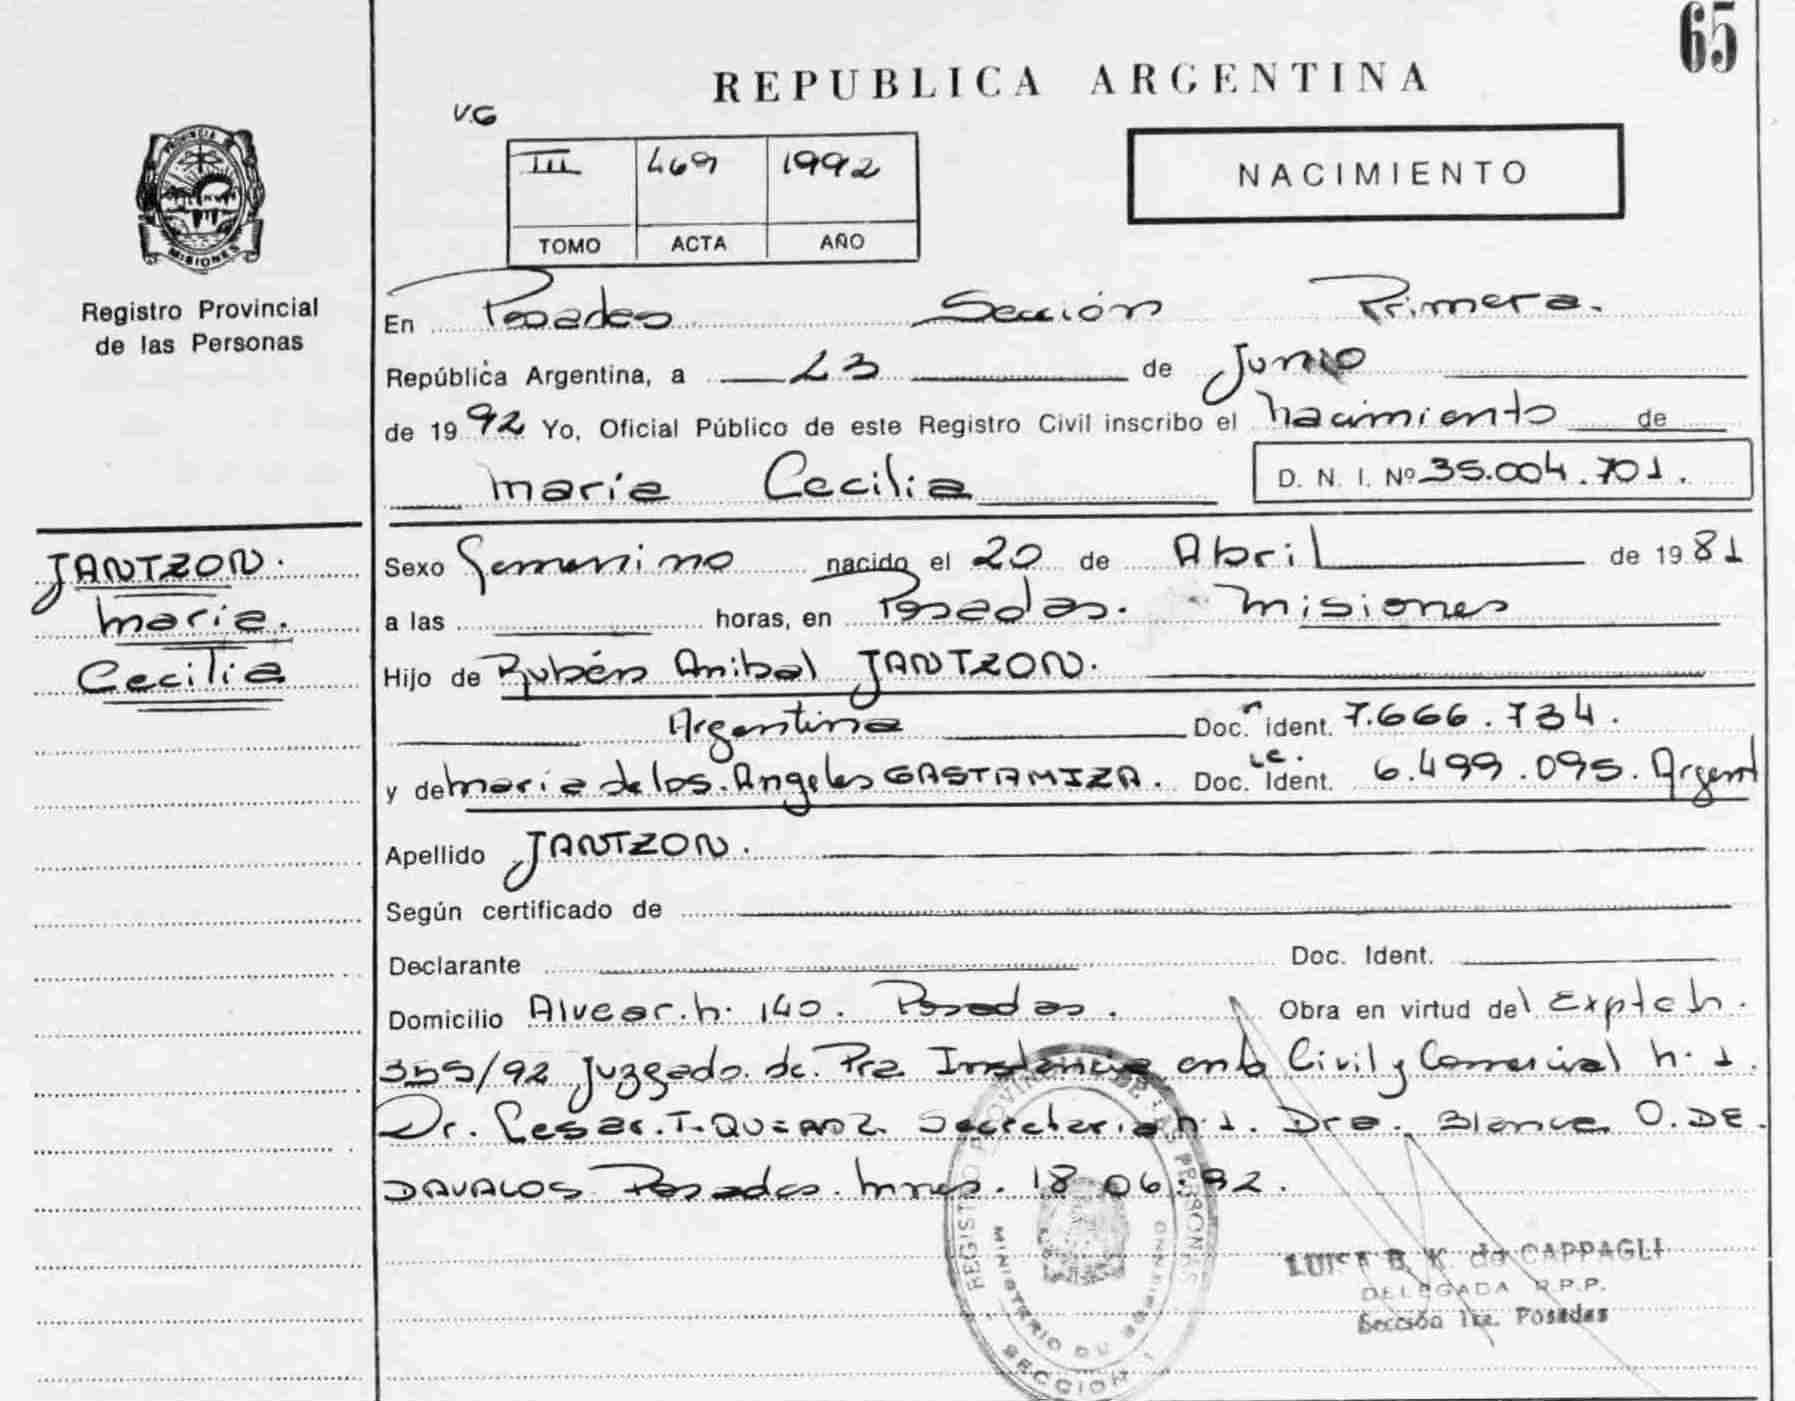 65
REPUBLICA ARGENTINA
V.G
III 469 1992
TOMO ACTA AÑO
NACIMIENTO
PROVINCIA DE MISIONES
Registro Provincial
de las Personas
En Posadas Sección Primera.
República Argentina, a 23 de Junio
de 1992 Yo, Oficial Público de este Registro Civil inscribo el nacimiento de
maria Cecilia D. N. I. Nº 35.004.701.
JANTZON.
maria.
Cecilia
Sexo Femenino nacido el 20 de Abril de 1981
a las horas, en Posadas. misiones
Hijo de Rubén Anibal JANTZON.
Argentina Doc. ident. 7.666.734.
y de maria de los Angeles GASTAMIZA. Doc. Ident. L.C. 6.499.095. Argent
Apellido JANTZON.
Según certificado de
Declarante Doc. Ident.
Domicilio Alvear. n. 140. Posadas. Obra en virtud del Expte n.
355/92 Juzgado de Pra Instancia en lo Civil y Comercial n. 1.
Dr. Cesar. T. Secretaria n. 1. Dra. Blanca O. DE.
DAVALOS Posadas. Mnes. 18 06.92.
REGISTRO PROVINCIAL DE LAS PERSONAS
MINISTERIO DE GOBIERNO
SECCION 1
LUISA B. K. de CAPPAGLI
DELEGADA R.P.P.
Sección 1ra. Posadas